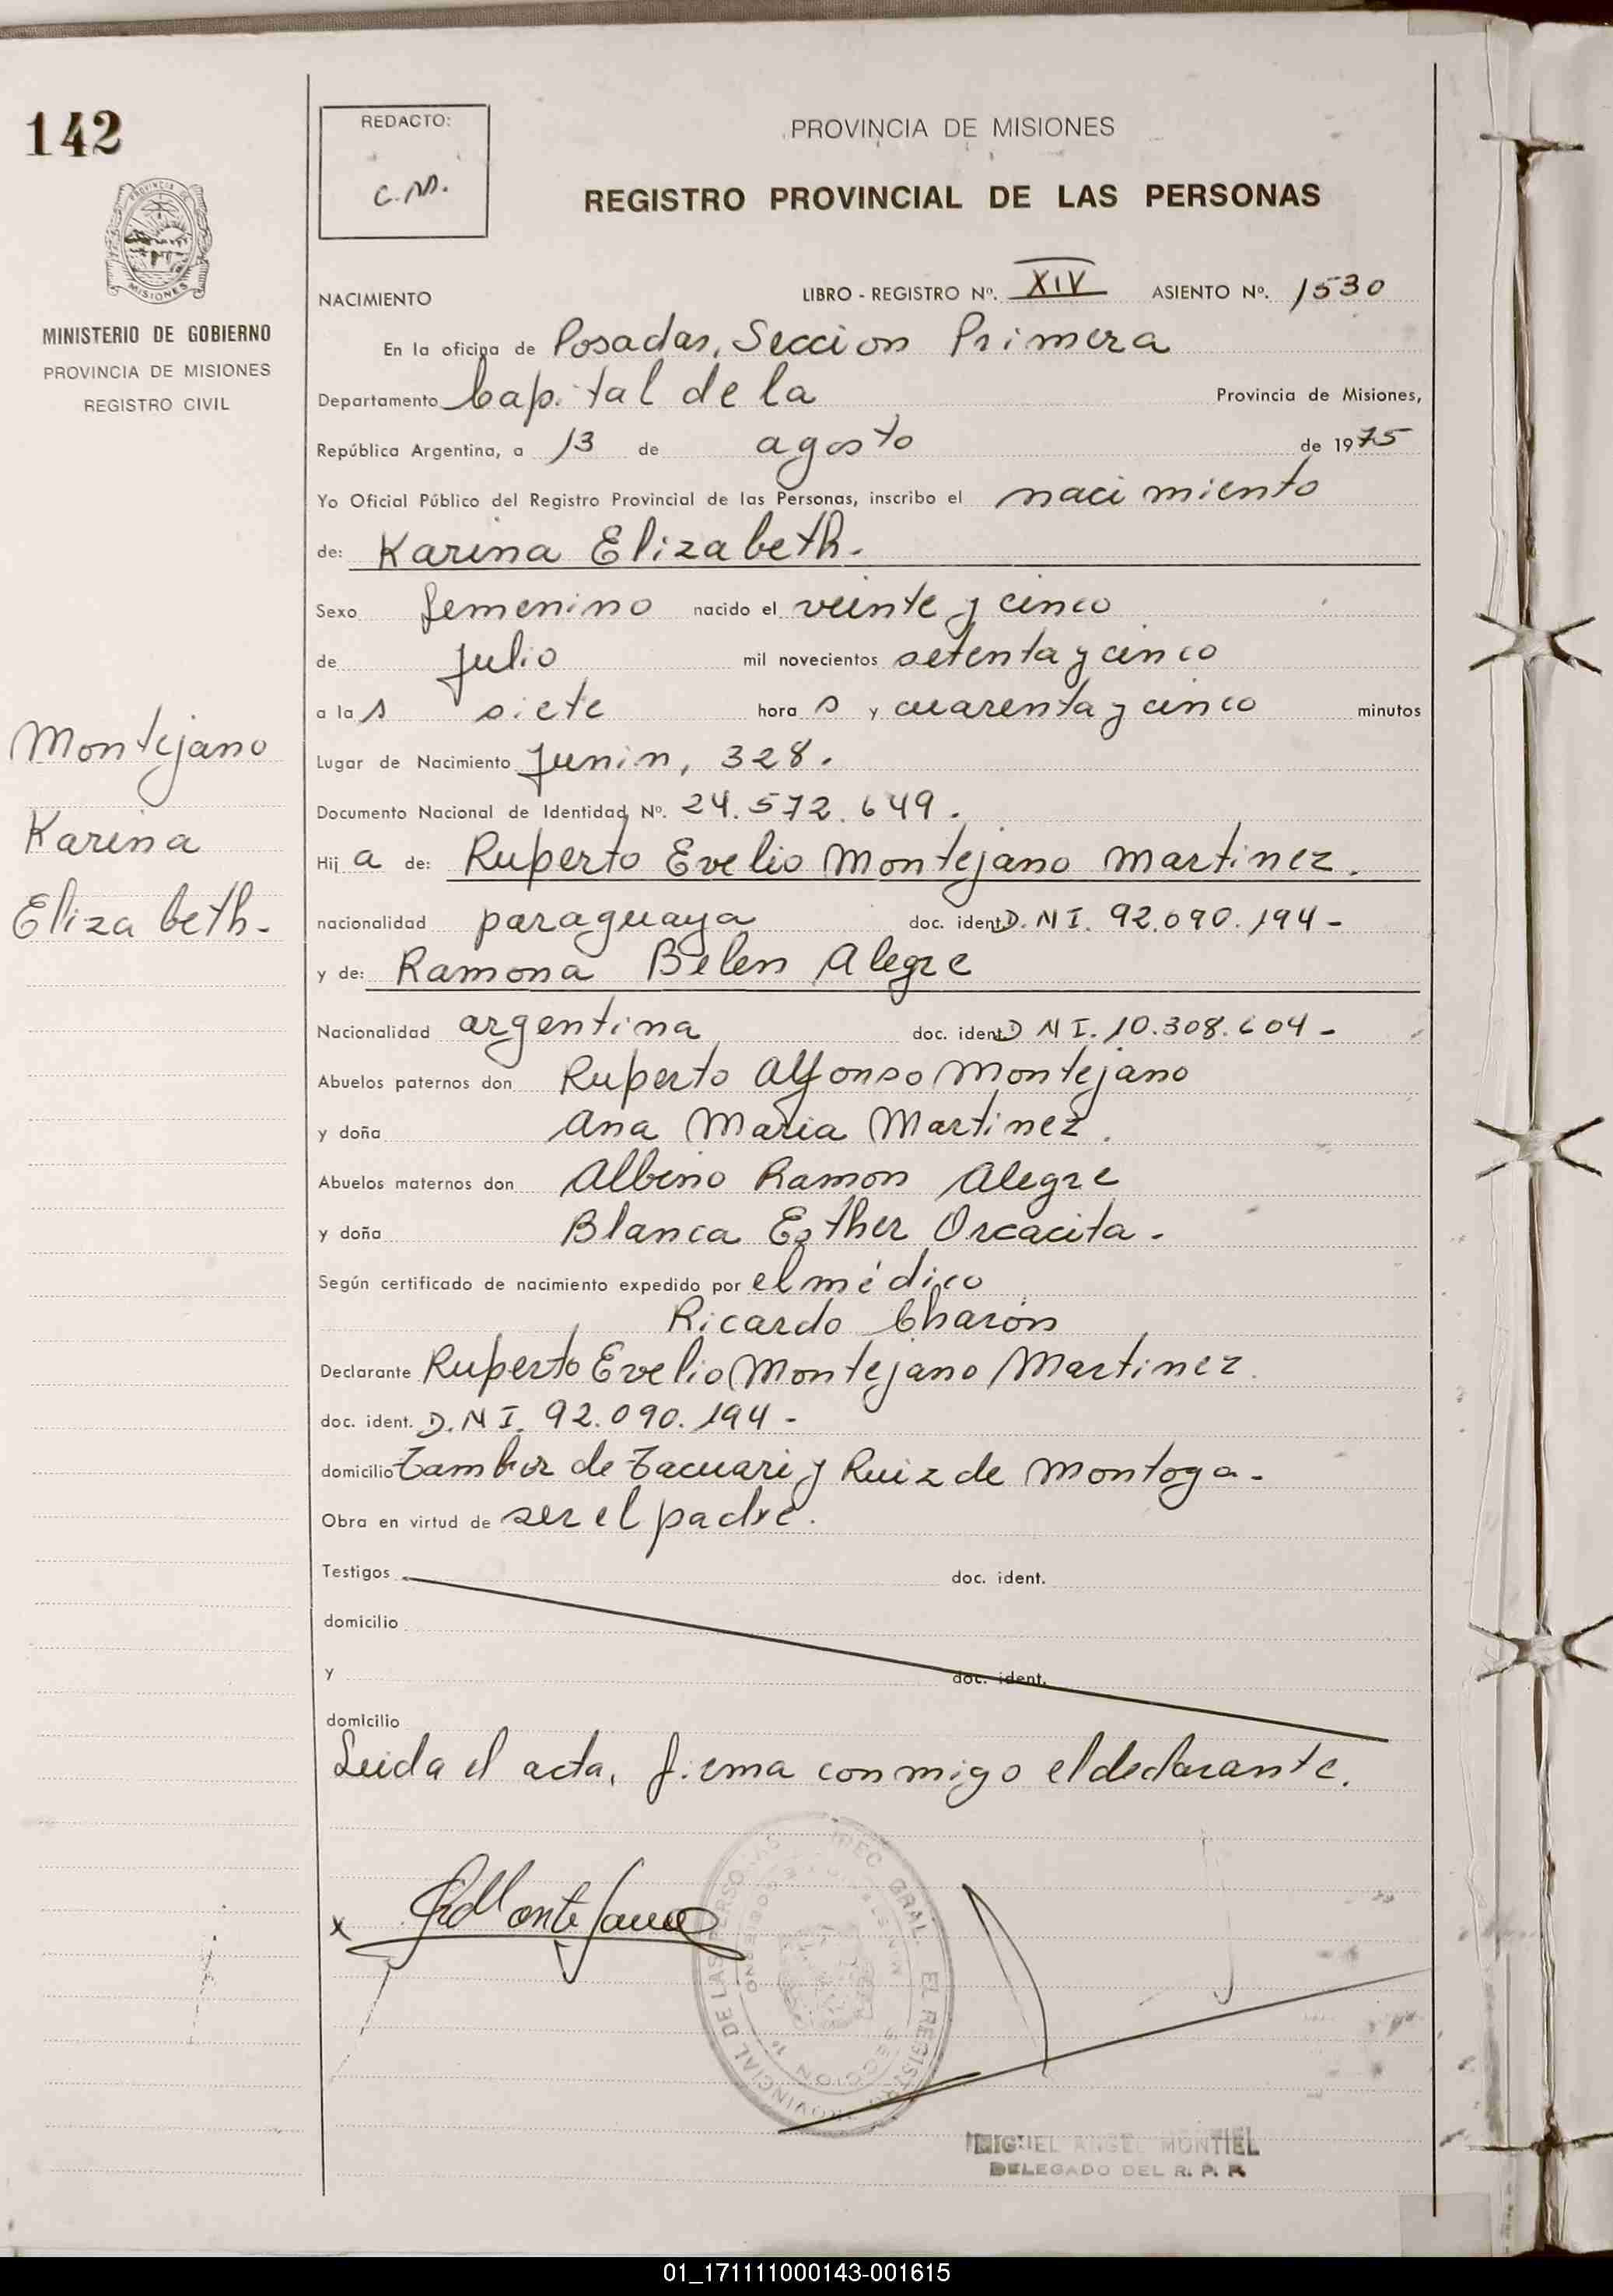 142
REDACTO:
C.M.
PROVINCIA DE MISIONES
REGISTRO PROVINCIAL DE LAS PERSONAS
PROVINCIA DE
MISIONES
MINISTERIO DE GOBIERNO
PROVINCIA DE MISIONES
REGISTRO CIVIL
NACIMIENTO
LIBRO - REGISTRO Nº. XIV ASIENTO Nº. 1530
En la oficina de Posadas, Seccion Primera
Departamento Capital de la Provincia de Misiones,
República Argentina, a 13 de agosto de 1975
Yo Oficial Público del Registro Provincial de las Personas, inscribo el nacimiento
de: Karina Elizabeth.
Sexo femenino nacido el veinte y cinco
de julio mil novecientos setenta y cinco
a la s siete hora s y cuarenta y cinco minutos
Lugar de Nacimiento Junin, 328.
Documento Nacional de Identidad Nº. 24.572.649.
Hij a de: Ruperto Evelio Montejano Martinez.
nacionalidad paraguaya doc. ident. D.N I. 92.090.194-
y de: Ramona Belen Alegre
Nacionalidad argentina doc. ident. D N I. 10.308.604-
Abuelos paternos don Ruperto Alfonso Montejano
y doña Ana Maria Martinez.
Abuelos maternos don Albino Ramon Alegre
y doña Blanca Esther Orcacita.
Según certificado de nacimiento expedido por el médico
Ricardo Charón
Declarante Ruperto Evelio Montejano Martinez.
doc. ident. D.N I. 92.090.194-
domicilio Tambor de Tacuari y Ruiz de Montoga-
Obra en virtud de ser el padre.
Testigos doc. ident.
domicilio
y doc. ident.
domicilio
Leida el acta, firma conmigo el declarante.
Montejano
Karina
Elizabeth-
x
GRAL. EL REGISTRO PROVINCIAL DE LAS PERSONAS
SECCION 1ª
MIGUEL ANGEL MONTIEL
DELEGADO DEL R. P. P.
01_171111000143-001615